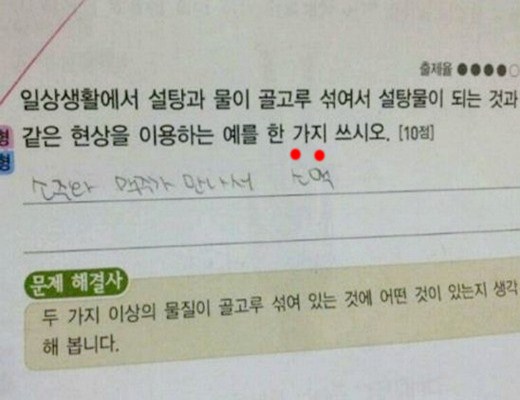 출제율
일상생활에서 설탕과 물이 골고루 섞여서 설탕물이 되는 것과
형 같은 현상을 이용하는 예를 한 가지 쓰시오. [10점]
형
소주와 맥주가 만나서 소맥
문제 해결사
두 가지 이상의 물질이 골고루 섞여 있는 것에 어떤 것이 있는지 생각
해 봅니다.